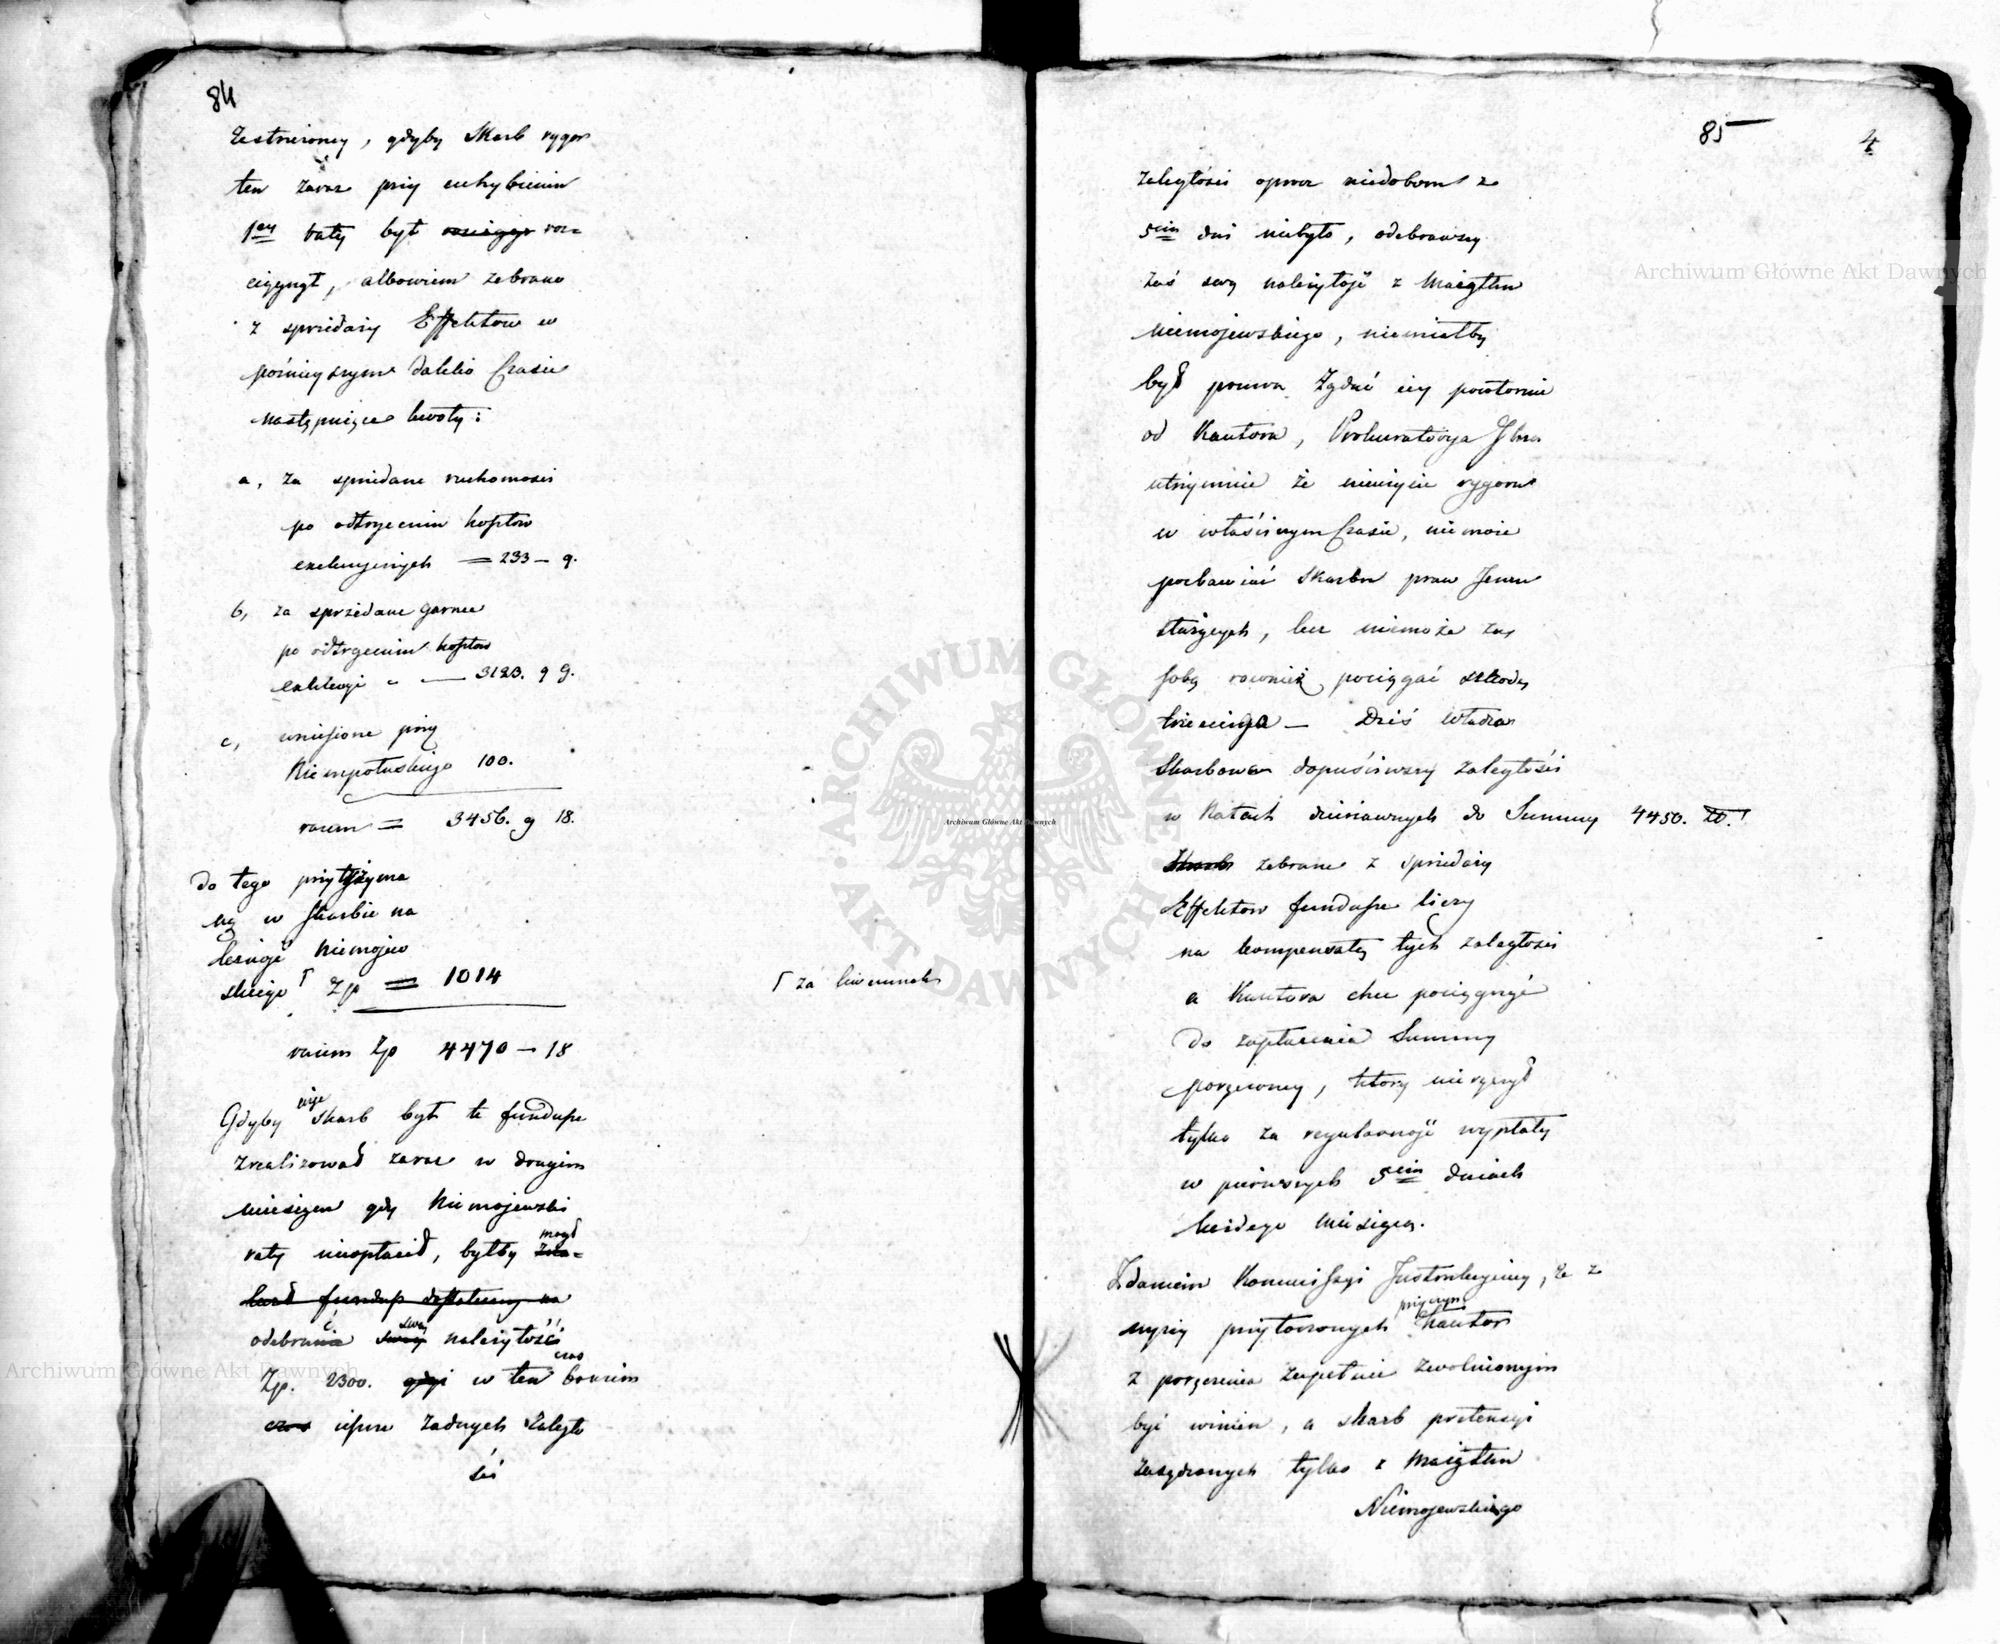 84
zestrzeżoney, gdyby Skarb rygor
ten zaraz przy uchybieniu
1ey raty był rościągn roz=
ciągngł, albowiem zebrano
z sprzedaży Effektow w
poźnieyszym daleko Czasie
następuiące kwoty:
a, za sprzedane ruchomości
po odtrąceniu kosztow
exekucyinych = 233 – 9.
b, za sprzedane garnce
po odtrąceniu kosztow
exekucyi " — 3123. g 9.
c, wniesione przez
Niempołuskiego 100.
razem = 3456. g 18.
do tego przytrzyma
ną w skarbie na
leżność Niemojew
skiego Γ Zp = 1014
Γ za
razem Zp 4470 – 18
Gdyby Skarb był te fundusze
zrealizował zaraz w drugim
miesiącu gdy Niemojewski
raty nieopłacił, byłby mogł
fundusz dostateczny na
odebrać swą należytość
Zp. 2300. gdyż w ten bowiem
czas ieszcze żadnych zaległo
ści
85
4
zaległości oprocz niedoboru z
5ciu dni niebyło, odebrawszy
zaś swą należytość z Maiątku
Niemojewskiego, niemiałby
był prawa żądać iey powtornie
od Kautora, Prokuratorya Jlna
utrzymuie że nieużycie rygoru
w właściwym Czasie, niemoże
pozbawiać Skarbu praw Jemu
służących, lecz niemoże za
sobą rownież pociągać szkody
trzeciego – Dziś Władza
Skarbowa dopuściwszy zaległości
w Ratach dzierżawnych do Summy 4450. Zł.
Skarb zebrane z sprzedaży
Effektow fundusze liczy
na kompensatę tych zaległości
a Kautora chce pociągnąć
do zapłacenia Summy
poręczoney, ktory nieręczył
tylko za regularność wypłaty
w pierwszych 5ciu dniach
każdego Miesiąca.
Zdaniem Kommissyi Instrukcyiney, że z
wyżey przytoczonych przyczyn Kautor
z poręczenia zupełnie zwolnionym
być winien, a skarb pretensyi
zasądzonych tylko z Maiątku
Niemojewskiego
Archiwum Główne Akt Dawnych
Archiwum Główne Akt Dawnych
Archiwum Główne Akt Dawnych
ARCHIWUM GŁÓWNE AKT DAWNYCH